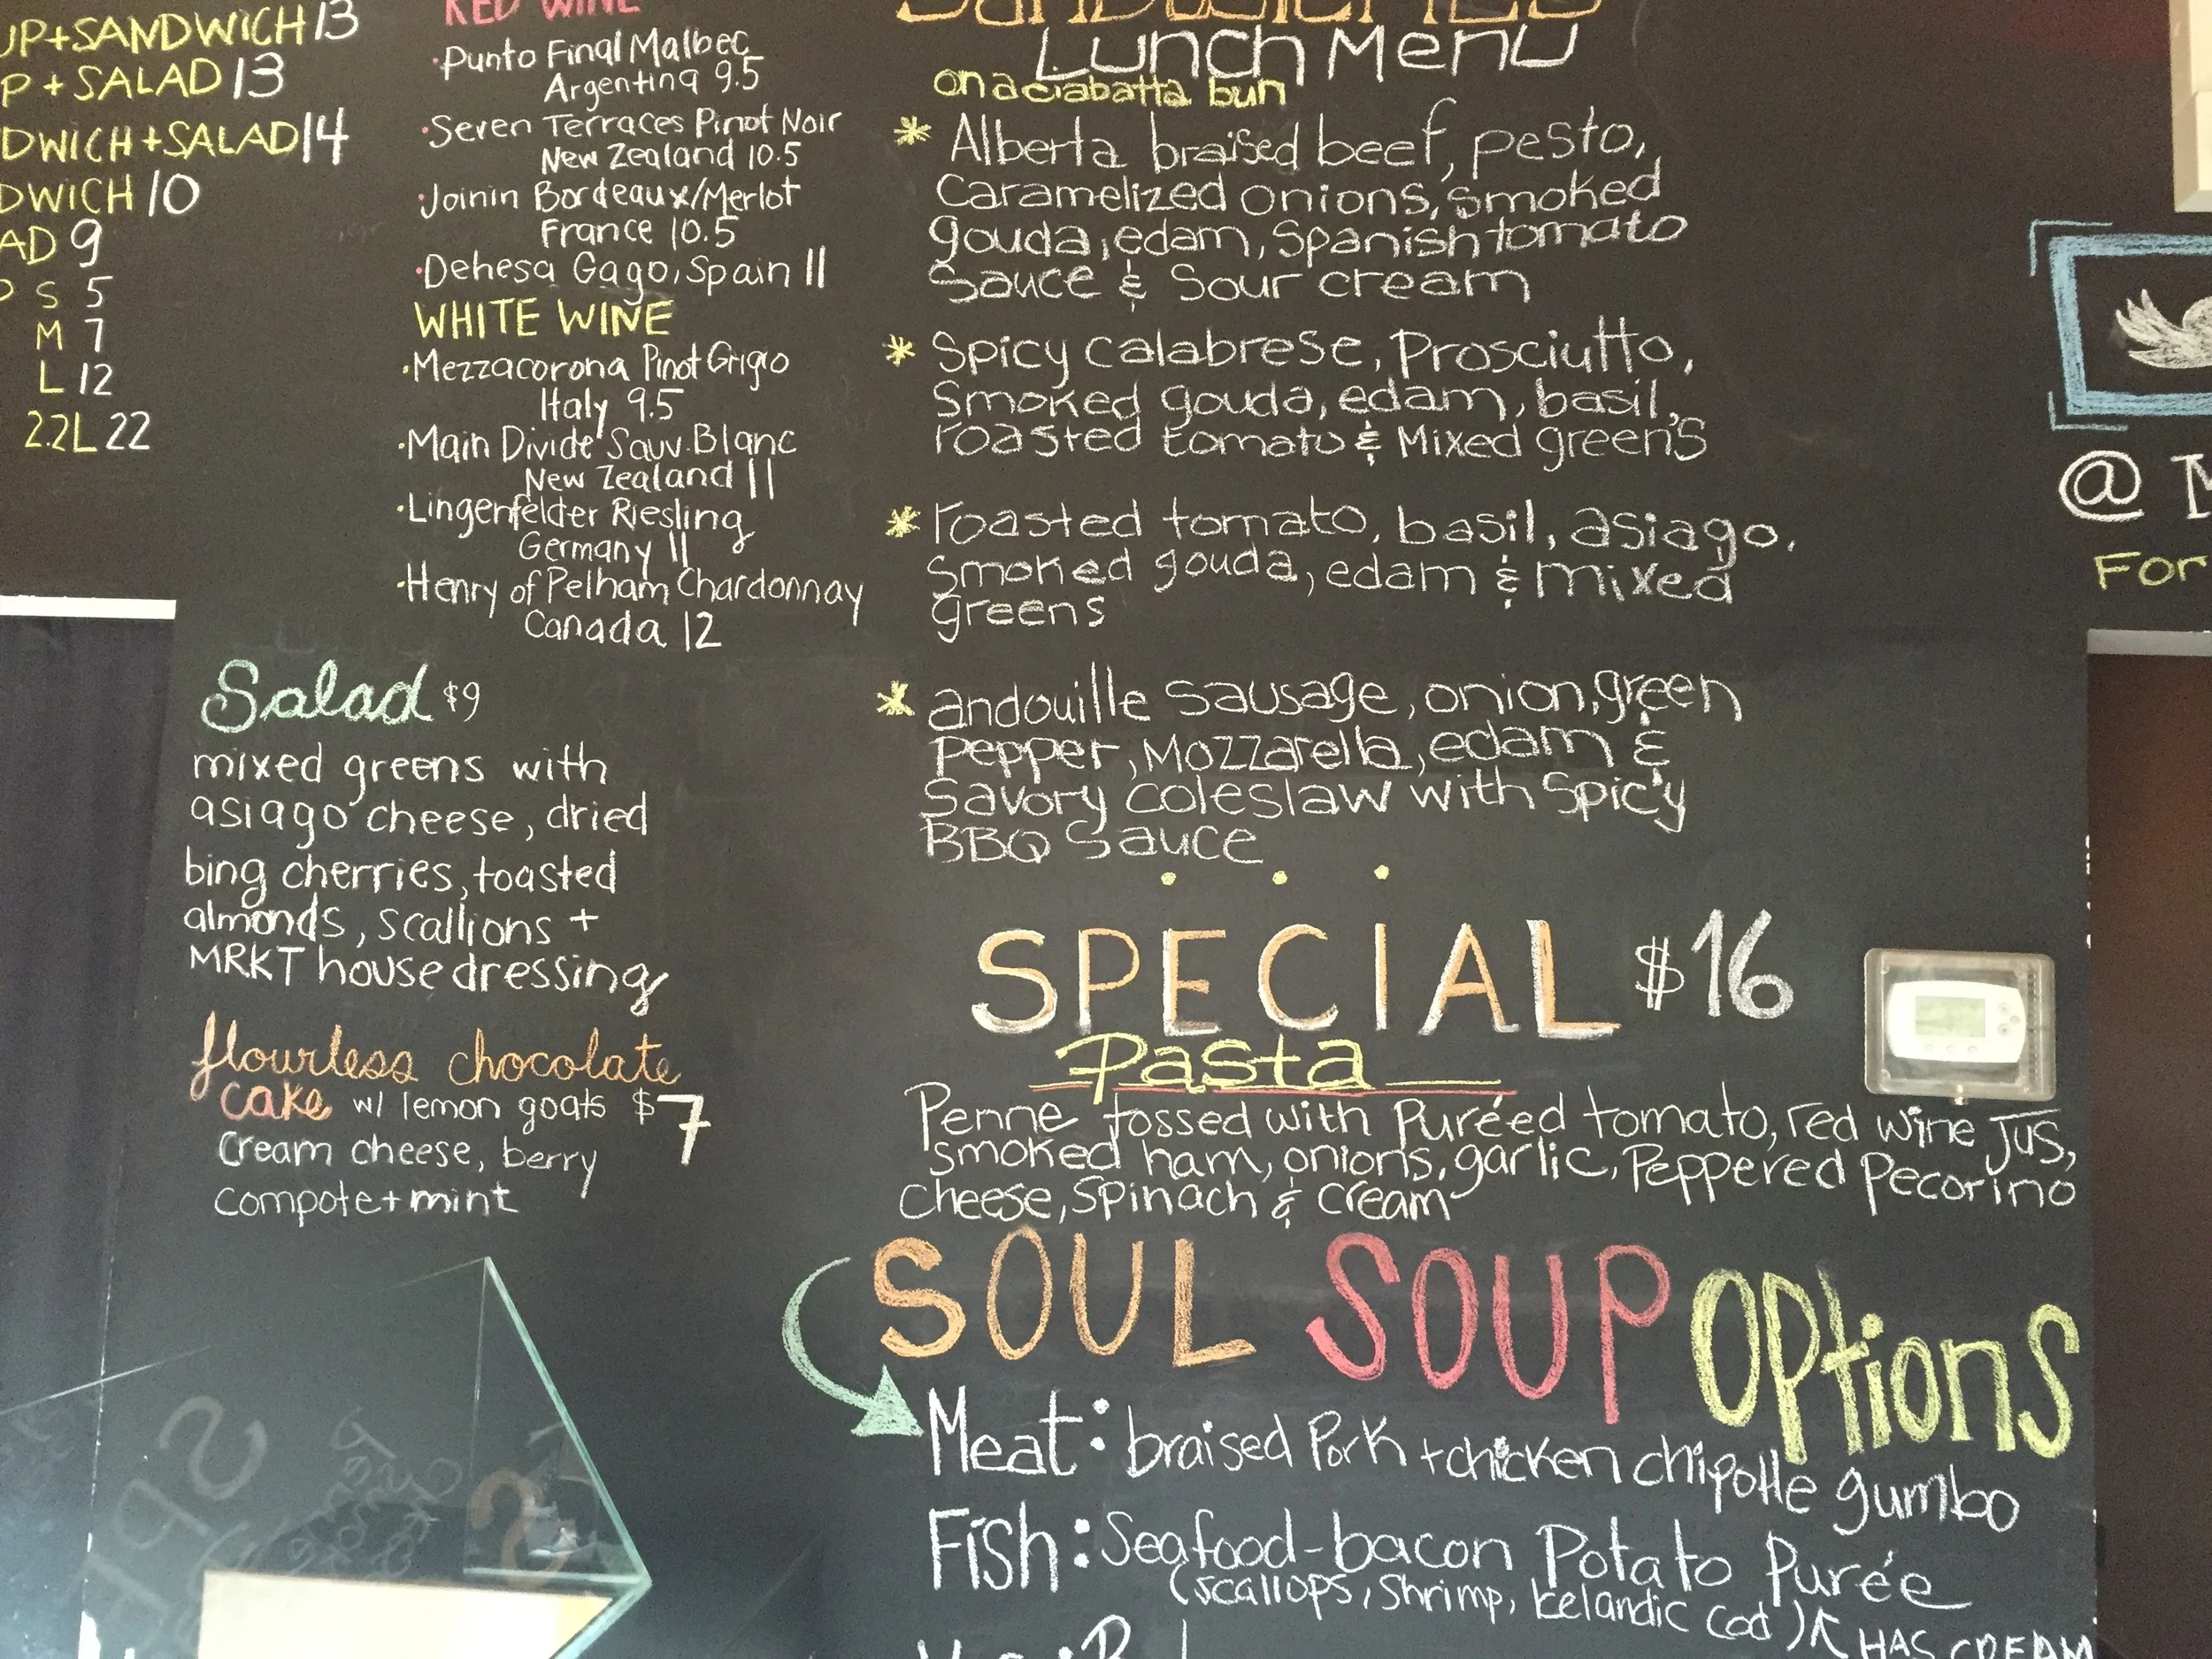 UP+SANDWICH 13
P + SALAD 13
DWICH + SALAD 14
DWICH 10
AD 9
S 5
M 7
L 12
2.2L 22
RED WINE
·Punto Final Malbec
Argentina 9.5
·Seven Terraces Pinot Noir
New Zealand 10.5
·Joinin Bordeaux/Merlot
France 10.5
·Dehesa Gago, Spain 11
WHITE WINE
·Mezzacorona Pinot Grigio
Italy 9.5
·Main Divide Sauv. Blanc
New Zealand 11
·Lingenfelder Riesling
Germany 11
·Henry of Pelham Chardonnay
Canada 12
Salad $9
mixed greens with
asiago cheese, dried
bing cherries, toasted
almonds, scallions +
MRKT house dressing
flourless chocolate
cake w/ lemon goats $7
cream cheese, berry
compote + mint
SANDWICHES
Lunch Menu
on a ciabatta bun
* Alberta braised beef, pesto,
Caramelized onions, smoked
gouda, edam, Spanish tomato
Sauce & Sour cream
* Spicy calabrese, Prosciutto,
Smoked gouda, edam, basil,
roasted tomato & Mixed green's
* roasted tomato, basil, asiago,
Smoked gouda, edam & mixed
greens
* andouille Sausage, onion, green
Pepper, Mozzarella, edam &
Savory coleslaw with Spicy
BBQ Sauce
SPECIAL $16
Pasta
Penne tossed with Puréed tomato, red wine JUS,
Smoked ham, onions, garlic, Peppered Pecorino
Cheese, Spinach & Cream
SOUL SOUP OPtions
Meat: braised Pork + chicken chipotle gumbo
Fish: Seafood-bacon Potato Purée
(scallops, Shrimp, Icelandic Cod) HAS CREAM
@
For